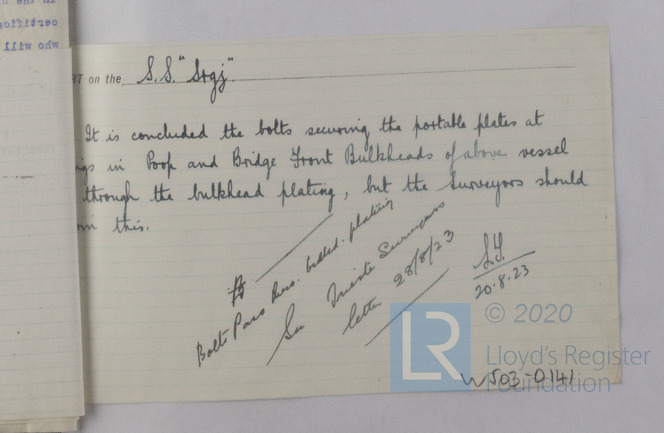 in the
certific
who will
RT on the S.S. "Srgj"
It is concluded the bolts securing the portable plates at
gs in Poop and Bridge Front Bulkheads of above vessel
through the bulkhead plating, but the Surveyors should
m this.
Bolts Pass thro. bulkd. plating
See Trieste Surveyors
letter 28/8/23
20.8.23
© 2020
LR
Lloyd's Register
Foundation
W503-0141